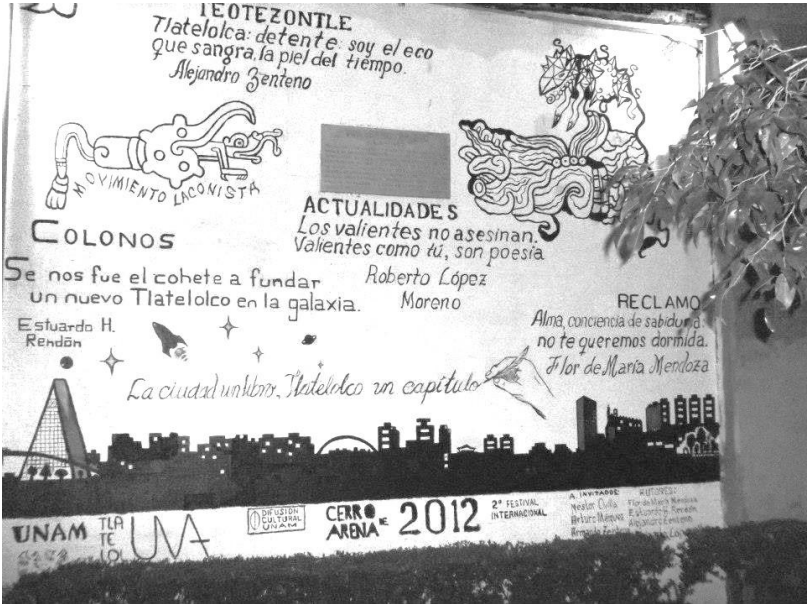 TEOTEZONTLE
Tlatelolca: detente: soy el eco
que sangra, la piel del tiempo.
Alejandro Zenteno
MOVIMIENTO LACONISTA
ACTUALIDADES
Los valientes no asesinan.
Valientes como tú, son poesía
Roberto López
Moreno
COLONOS
Se nos fue el cohete a fundar
un nuevo Tlatelolco en la galaxia.
Estuardo H.
Rendón
RECLAMO
Alma, conciencia de sabiduría:
no te queremos dormida.
Flor de María Mendoza
La ciudad un libro, Tlatelolco un capítulo
UNAM
TLA
TE
LOL
UVA
DIFUSIÓN
CULTURAL
UNAM
CERRO DE
ARENA
2012
2º FESTIVAL
INTERNACIONAL
A. INVITADOS
Arturo
AUTORES:
Flor de María Mendoza
Estuardo H. Rendón
Alejandro Zenteno